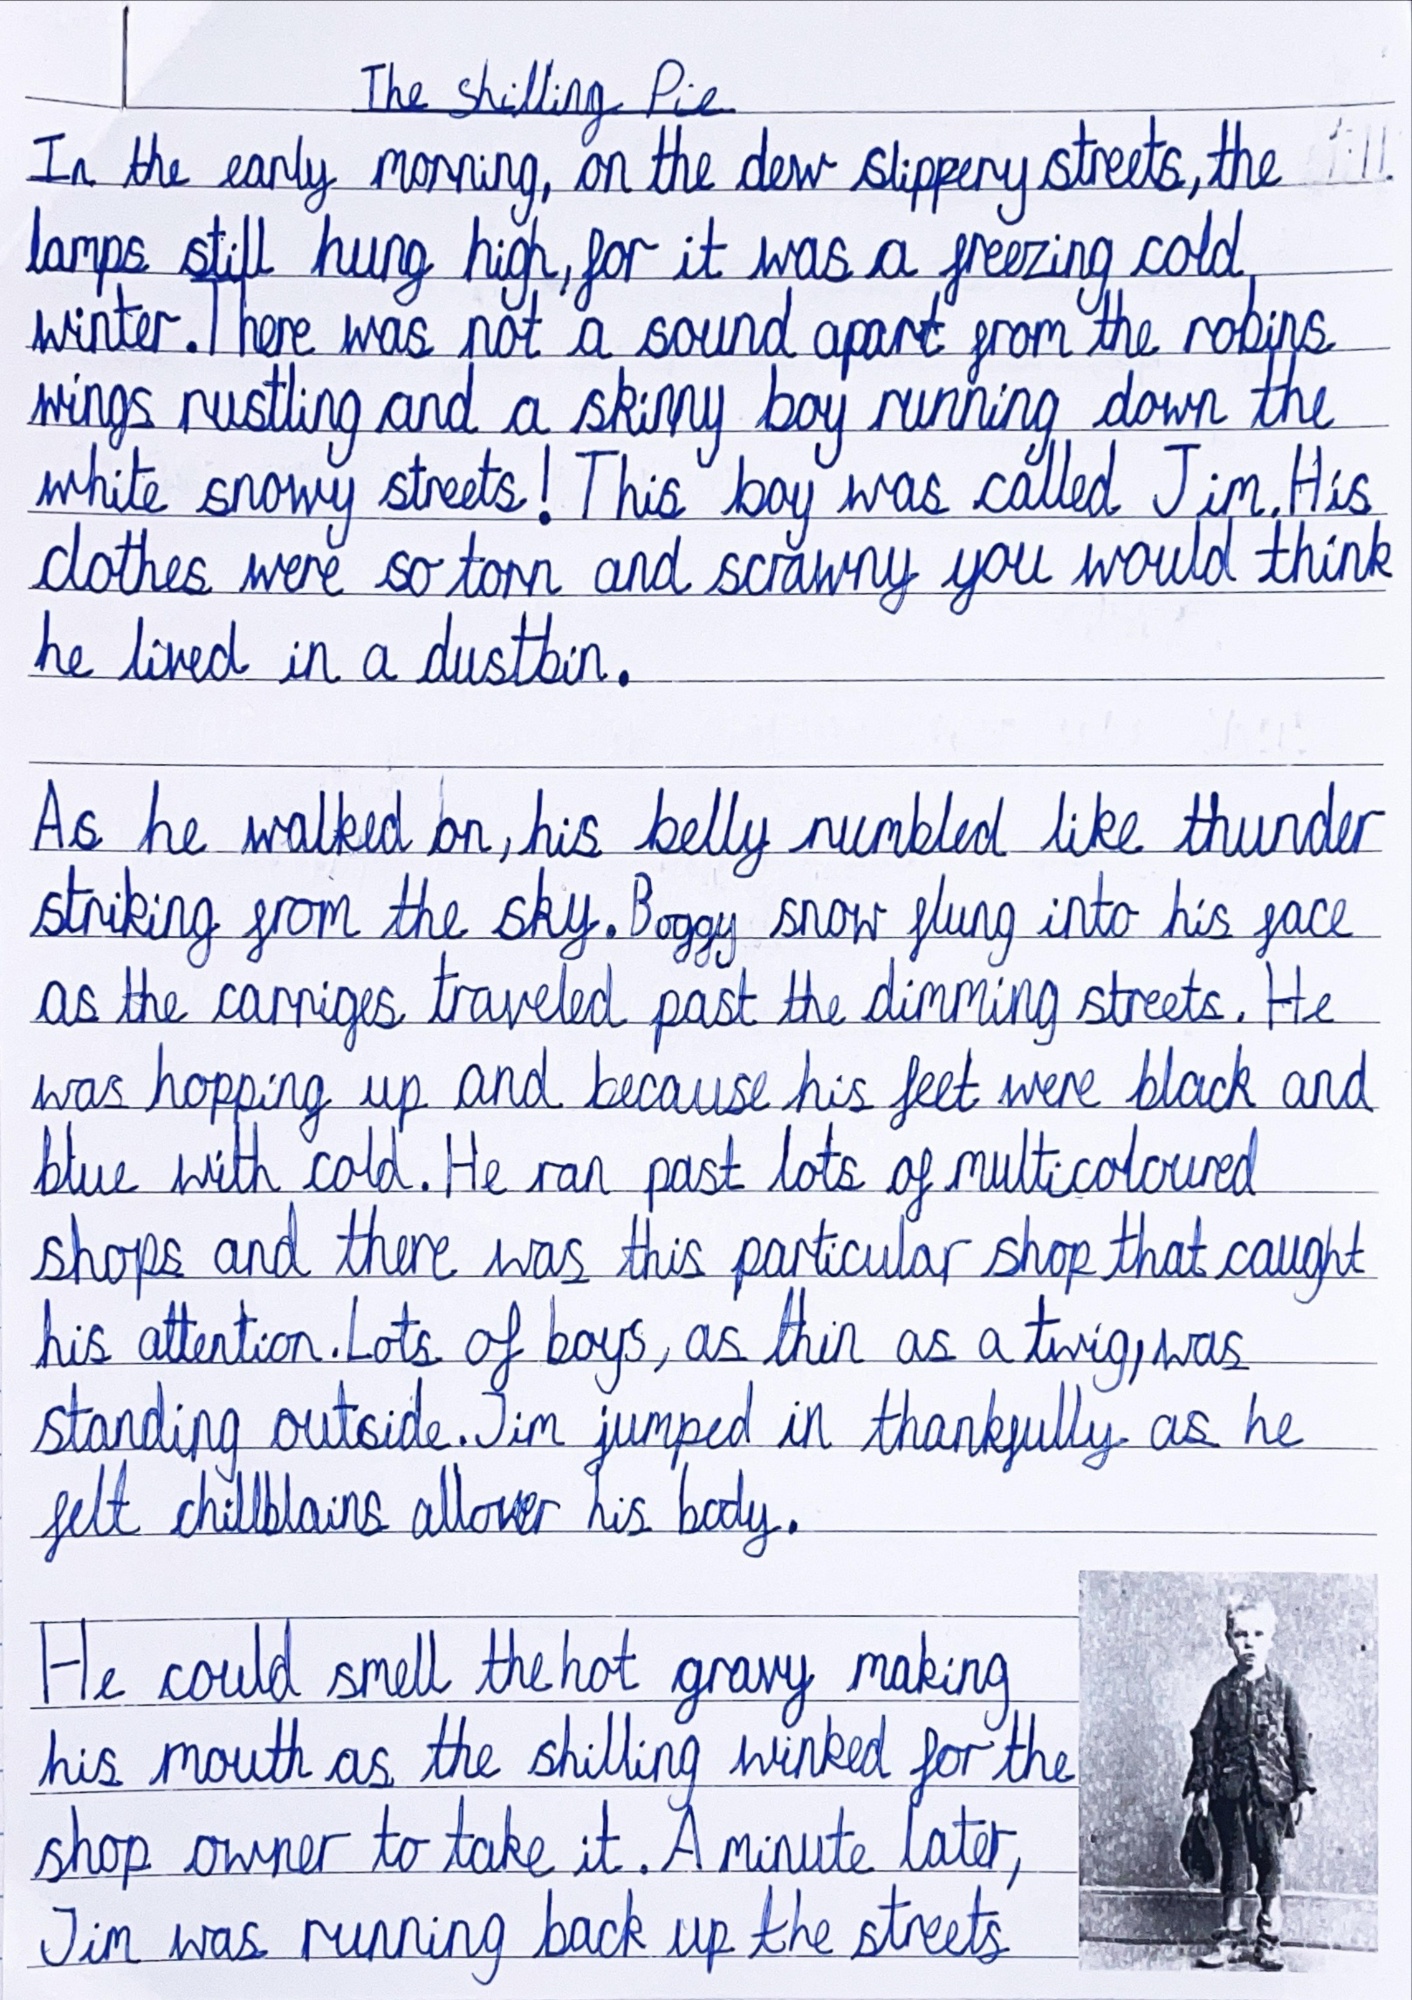 The Shilling Pie
In the early morning, on the dew slippery streets, the
lamps still hung high, for it was a freezing cold
winter. There was not a sound apart from the robins
wings rustling and a skinny boy running down the
white snowy streets! This boy was called Jim. His
clothes were so torn and scrawny you would think
he lived in a dustbin.
As he walked on, his belly rumbled like thunder
striking from the sky. Boggy snow flung into his face
as the carriges traveled past the dimming streets. He
was hopping up and because his feet were black and
blue with cold. He ran past lots of multicoloured
shops and there was this particular shop that caught
his attention. Lots of boys, as thin as a twig, was
standing outside. Jim jumped in thankfully as he
felt chillblains all over his body.
He could smell the hot gravy making
his mouth as the shilling winked for the
shop owner to take it. A minute later,
Jim was running back up the streets